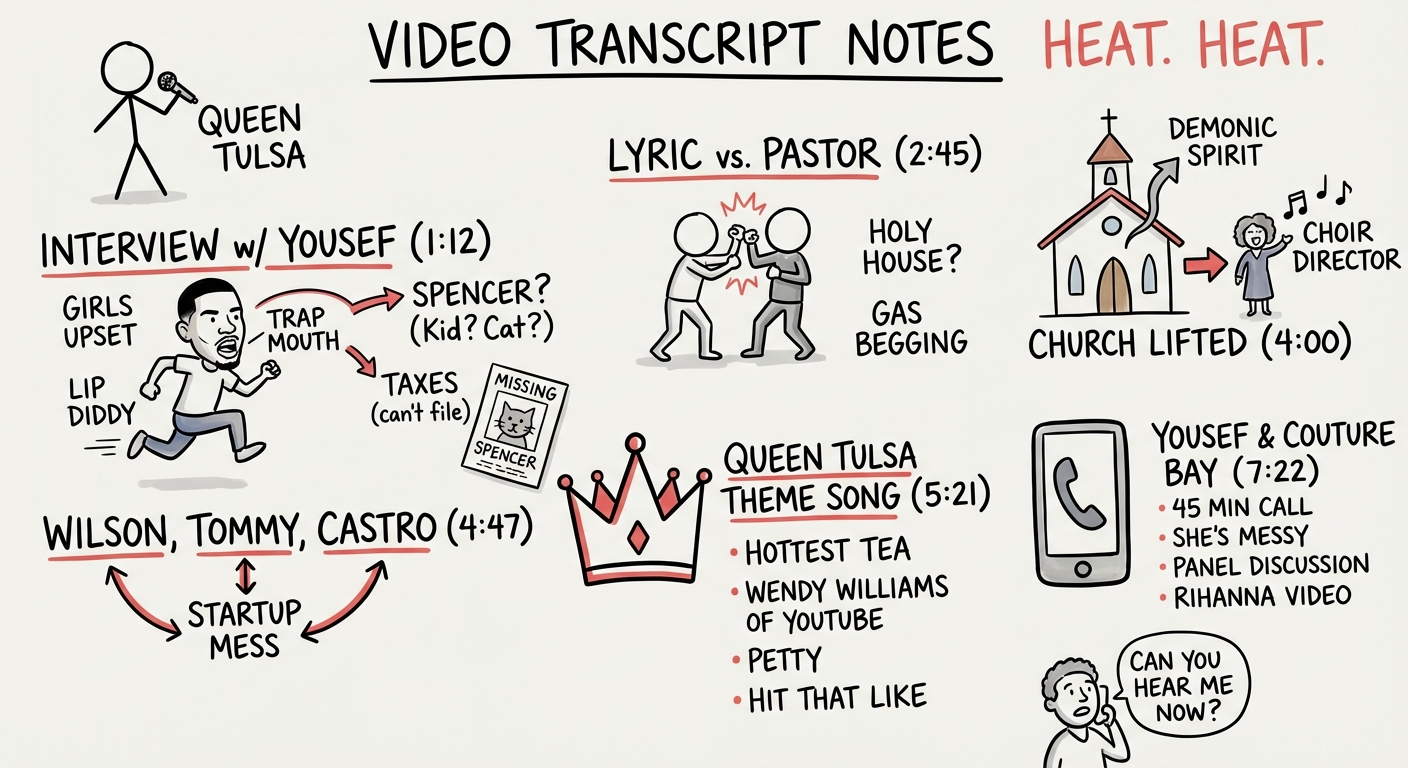 VIDEO TRANSCRIPT NOTES HEAT. HEAT.
QUEEN
TULSA
INTERVIEW w/ YOUSEF (1:12)
GIRLS
UPSET
LIP
DIDDY
TRAP
MOUTH
SPENCER?
(Kid? Cat?)
TAXES
(can't file)
MISSING
SPENCER
WILSON, TOMMY, CASTRO (4:47)
STARTUP
MESS
LYRIC vs. PASTOR (2:45)
HOLY
HOUSE?
GAS
BEGGING
QUEEN TULSA
THEME SONG (5:21)
• HOTTEST TEA
• WENDY WILLIAMS
OF YOUTUBE
• PETTY
• HIT THAT LIKE
DEMONIC
SPIRIT
CHOIR
DIRECTOR
CHURCH LIFTED (4:00)
YOUSEF & COUTURE
BAY (7:22)
• 45 MIN CALL
• SHE'S MESSY
• PANEL DISCUSSION
• RIHANNA VIDEO
CAN YOU
HEAR ME
NOW?